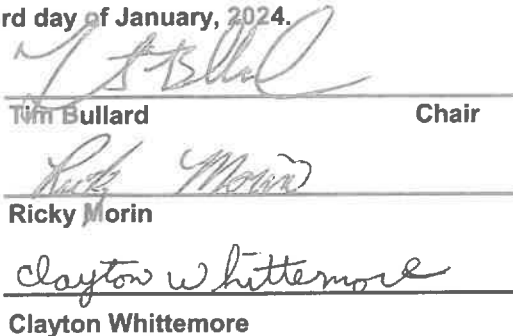 rd day of January, 2024.
T Bullard
Tim Bullard Chair
Ricky Morin
Ricky Morin
Clayton Whittemore
Clayton Whittemore